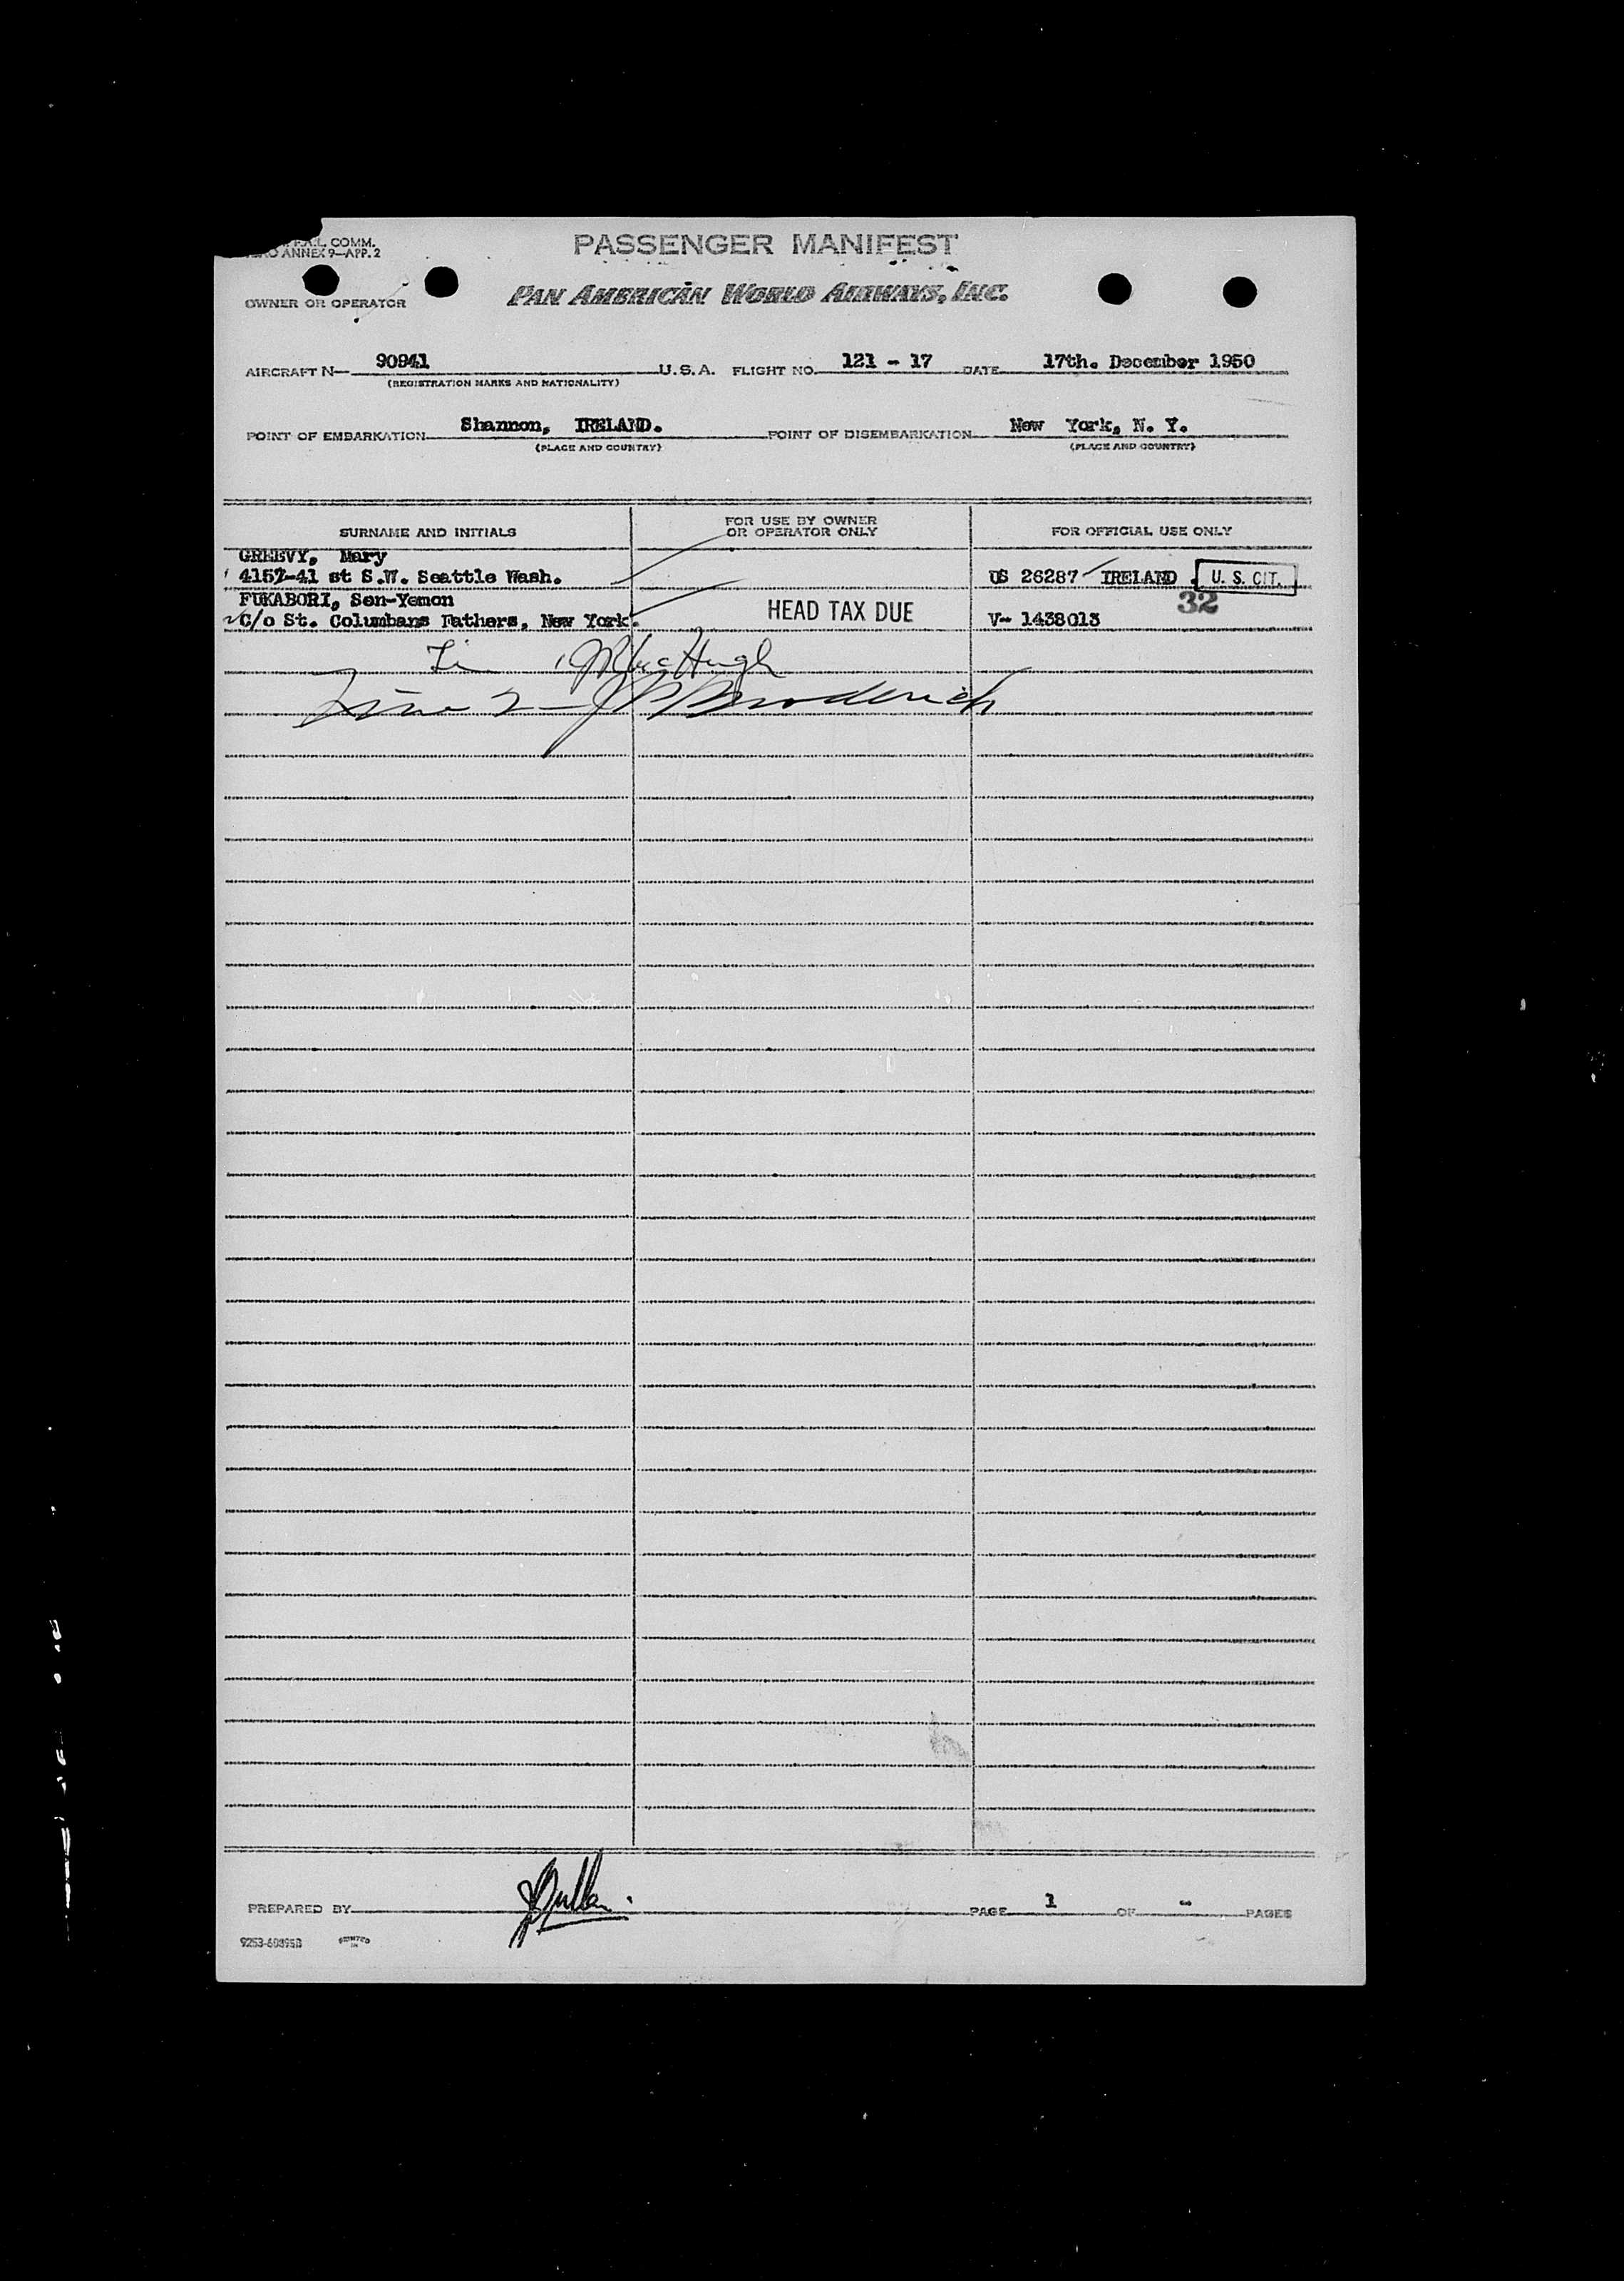 L. COMM.
ANNEX 9—APP. 2
PASSENGER MANIFEST
OWNER OR OPERATOR
PAN AMERICAN WORLD AIRWAYS, INC.
AIRCRAFT N— 90941 U.S.A. FLIGHT NO. 121 - 17 DATE 17th. December 1950
(REGISTRATION MARKS AND NATIONALITY)
POINT OF EMBARKATION Shannon, IRELAND. POINT OF DISEMBARKATION New York, N. Y.
(PLACE AND COUNTRY) (PLACE AND COUNTRY)
SURNAME AND INITIALS FOR USE BY OWNER OR OPERATOR ONLY FOR OFFICIAL USE ONLY
GREEVY, Mary
4157-41 st S.W. Seattle Wash. US 26287 IRELAND . U. S. CIT.
FUKABORI, Sen-Yemon 32
C/o St. Columbans Fathers, New York. HEAD TAX DUE V- 1438013
Line 2 - J P Broderick
PREPARED BY PAGE 1 OF - PAGES
PRINTED IN